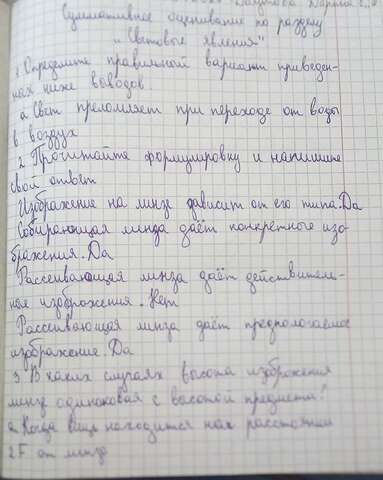 Суммативное оценивание по разделу
"Световые явления"
1. Определите правильной вариант приведен-
ных ниже выводов.
а. Свет преломляет при переходе от воды
в воздух
2. Прочитайте формулировку и напишите
свой ответ
Изображение на линзе зависит от его типа. Да
Собирающая линза даёт конкретные изо-
бражения. Да
Рассеивающая линза даёт действитель-
ные изображения. Нет
Рассеивающая линза даёт предпологаемое
изображение. Да
3. В каких случаях высота изображения
линзе одинаковая с высотой предмета?
а. Когда вещь находится на расстоянии
2F от линзы